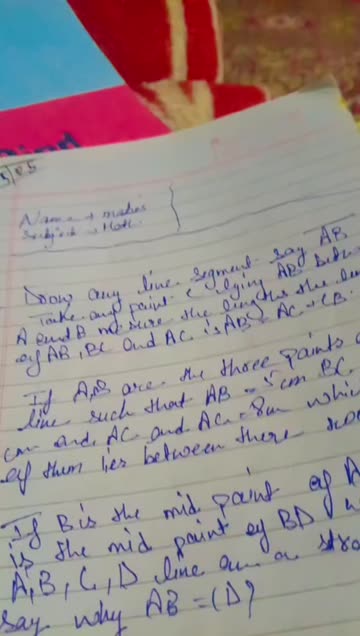 Name → 
Subject → Math.
Draw any line segment say AB
Take any point C lying AB
A and B measure the lengths the
of AB, BC and AC is AB = AC + CB
If A,B are the three points
line such that AB = 5cm BC
cm and AC and AC = 8cm which
of them lies between there
If B is the mid point of
is the mid point of BD
A, B, C, D line on a
say why AB = CD?